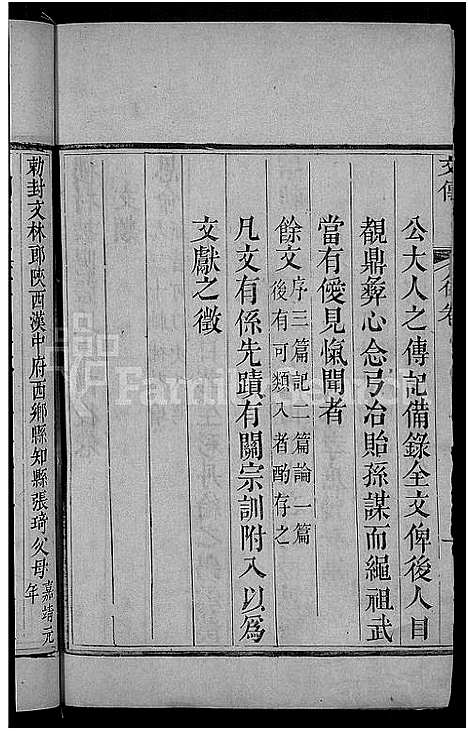 公大人之傳記備錄全文俾後人目
覩鼎彞心念弓冶貽孫謀而繩祖武
當有僾見愾聞者
餘文 序三篇記二篇論一篇
後有可類入者酌存之
凡文有係先蹟有關宗訓附入以爲
文獻之徵
勅封文林郎陝西漢中府西鄉縣知縣張琦父母 嘉靖元
年
FamilySearch